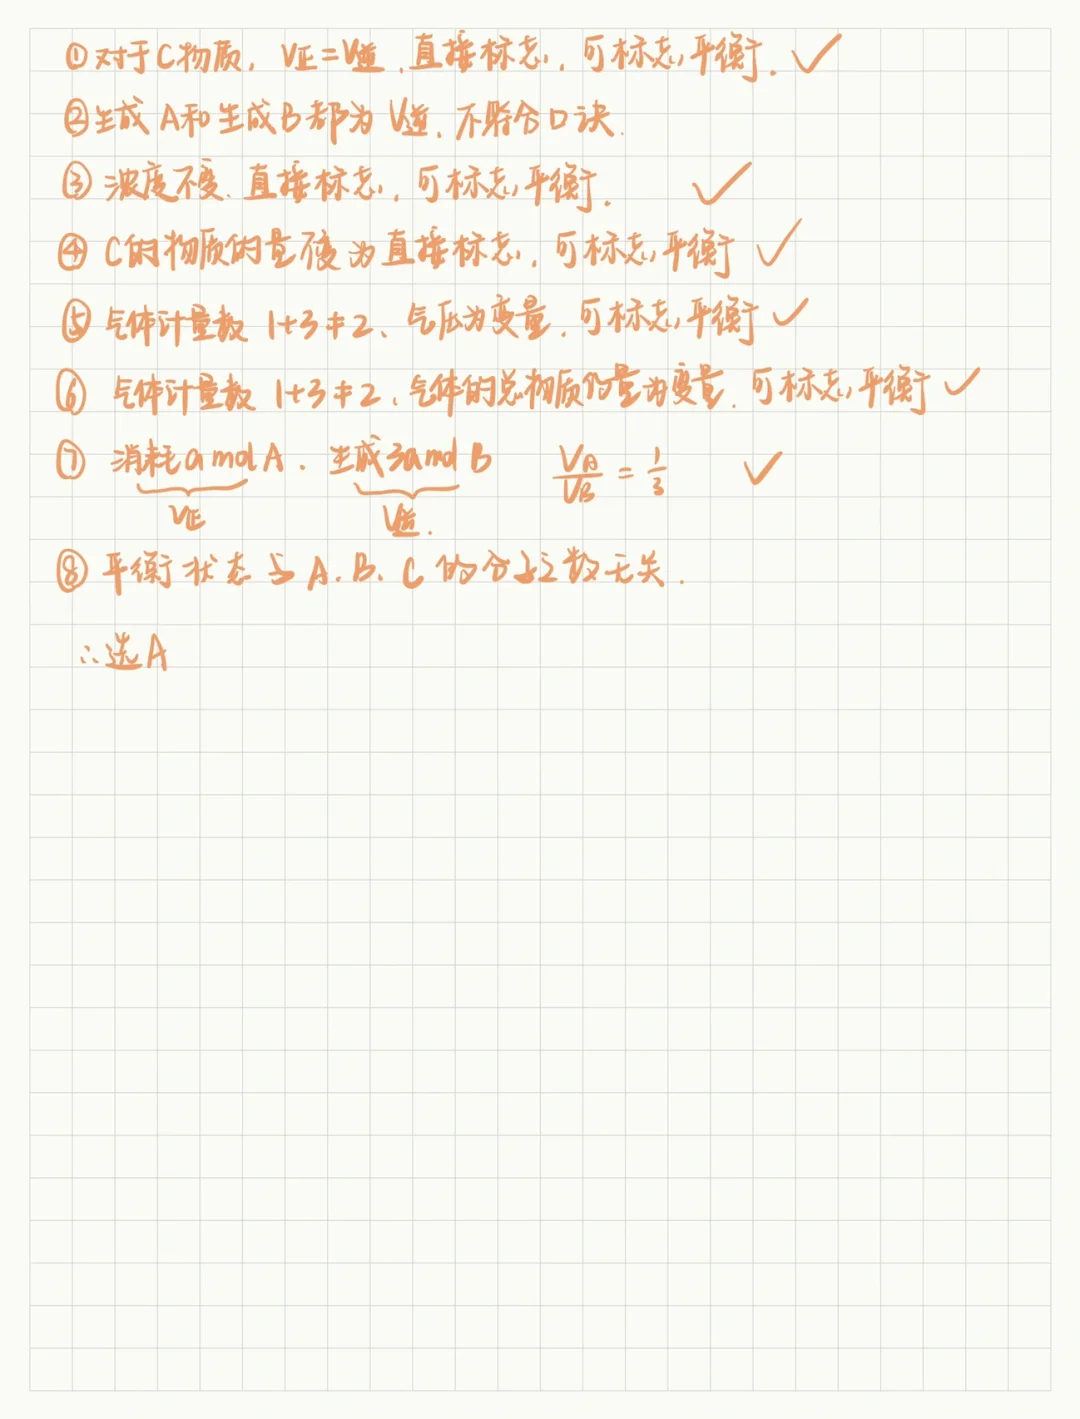 ①对于C物质，V正=V逆，直接标志，可标志平衡．✓
②生成A和生成B都为V逆，不符合口诀．
③浓度不变、直接标志，可标志平衡．✓
④C的物质的量不变为直接标志，可标志平衡✓
⑤气体计量数 1+3≠2、气压为变量，可标志平衡✓
⑥气体计量数 1+3≠2、气体的总物质的量为变量．可标志平衡✓
⑦消耗amolA、生成3amolB VA/VB=1/3 ✓
V正 V逆．
⑧平衡状态与A、B、C的分子数无关．
∴选A